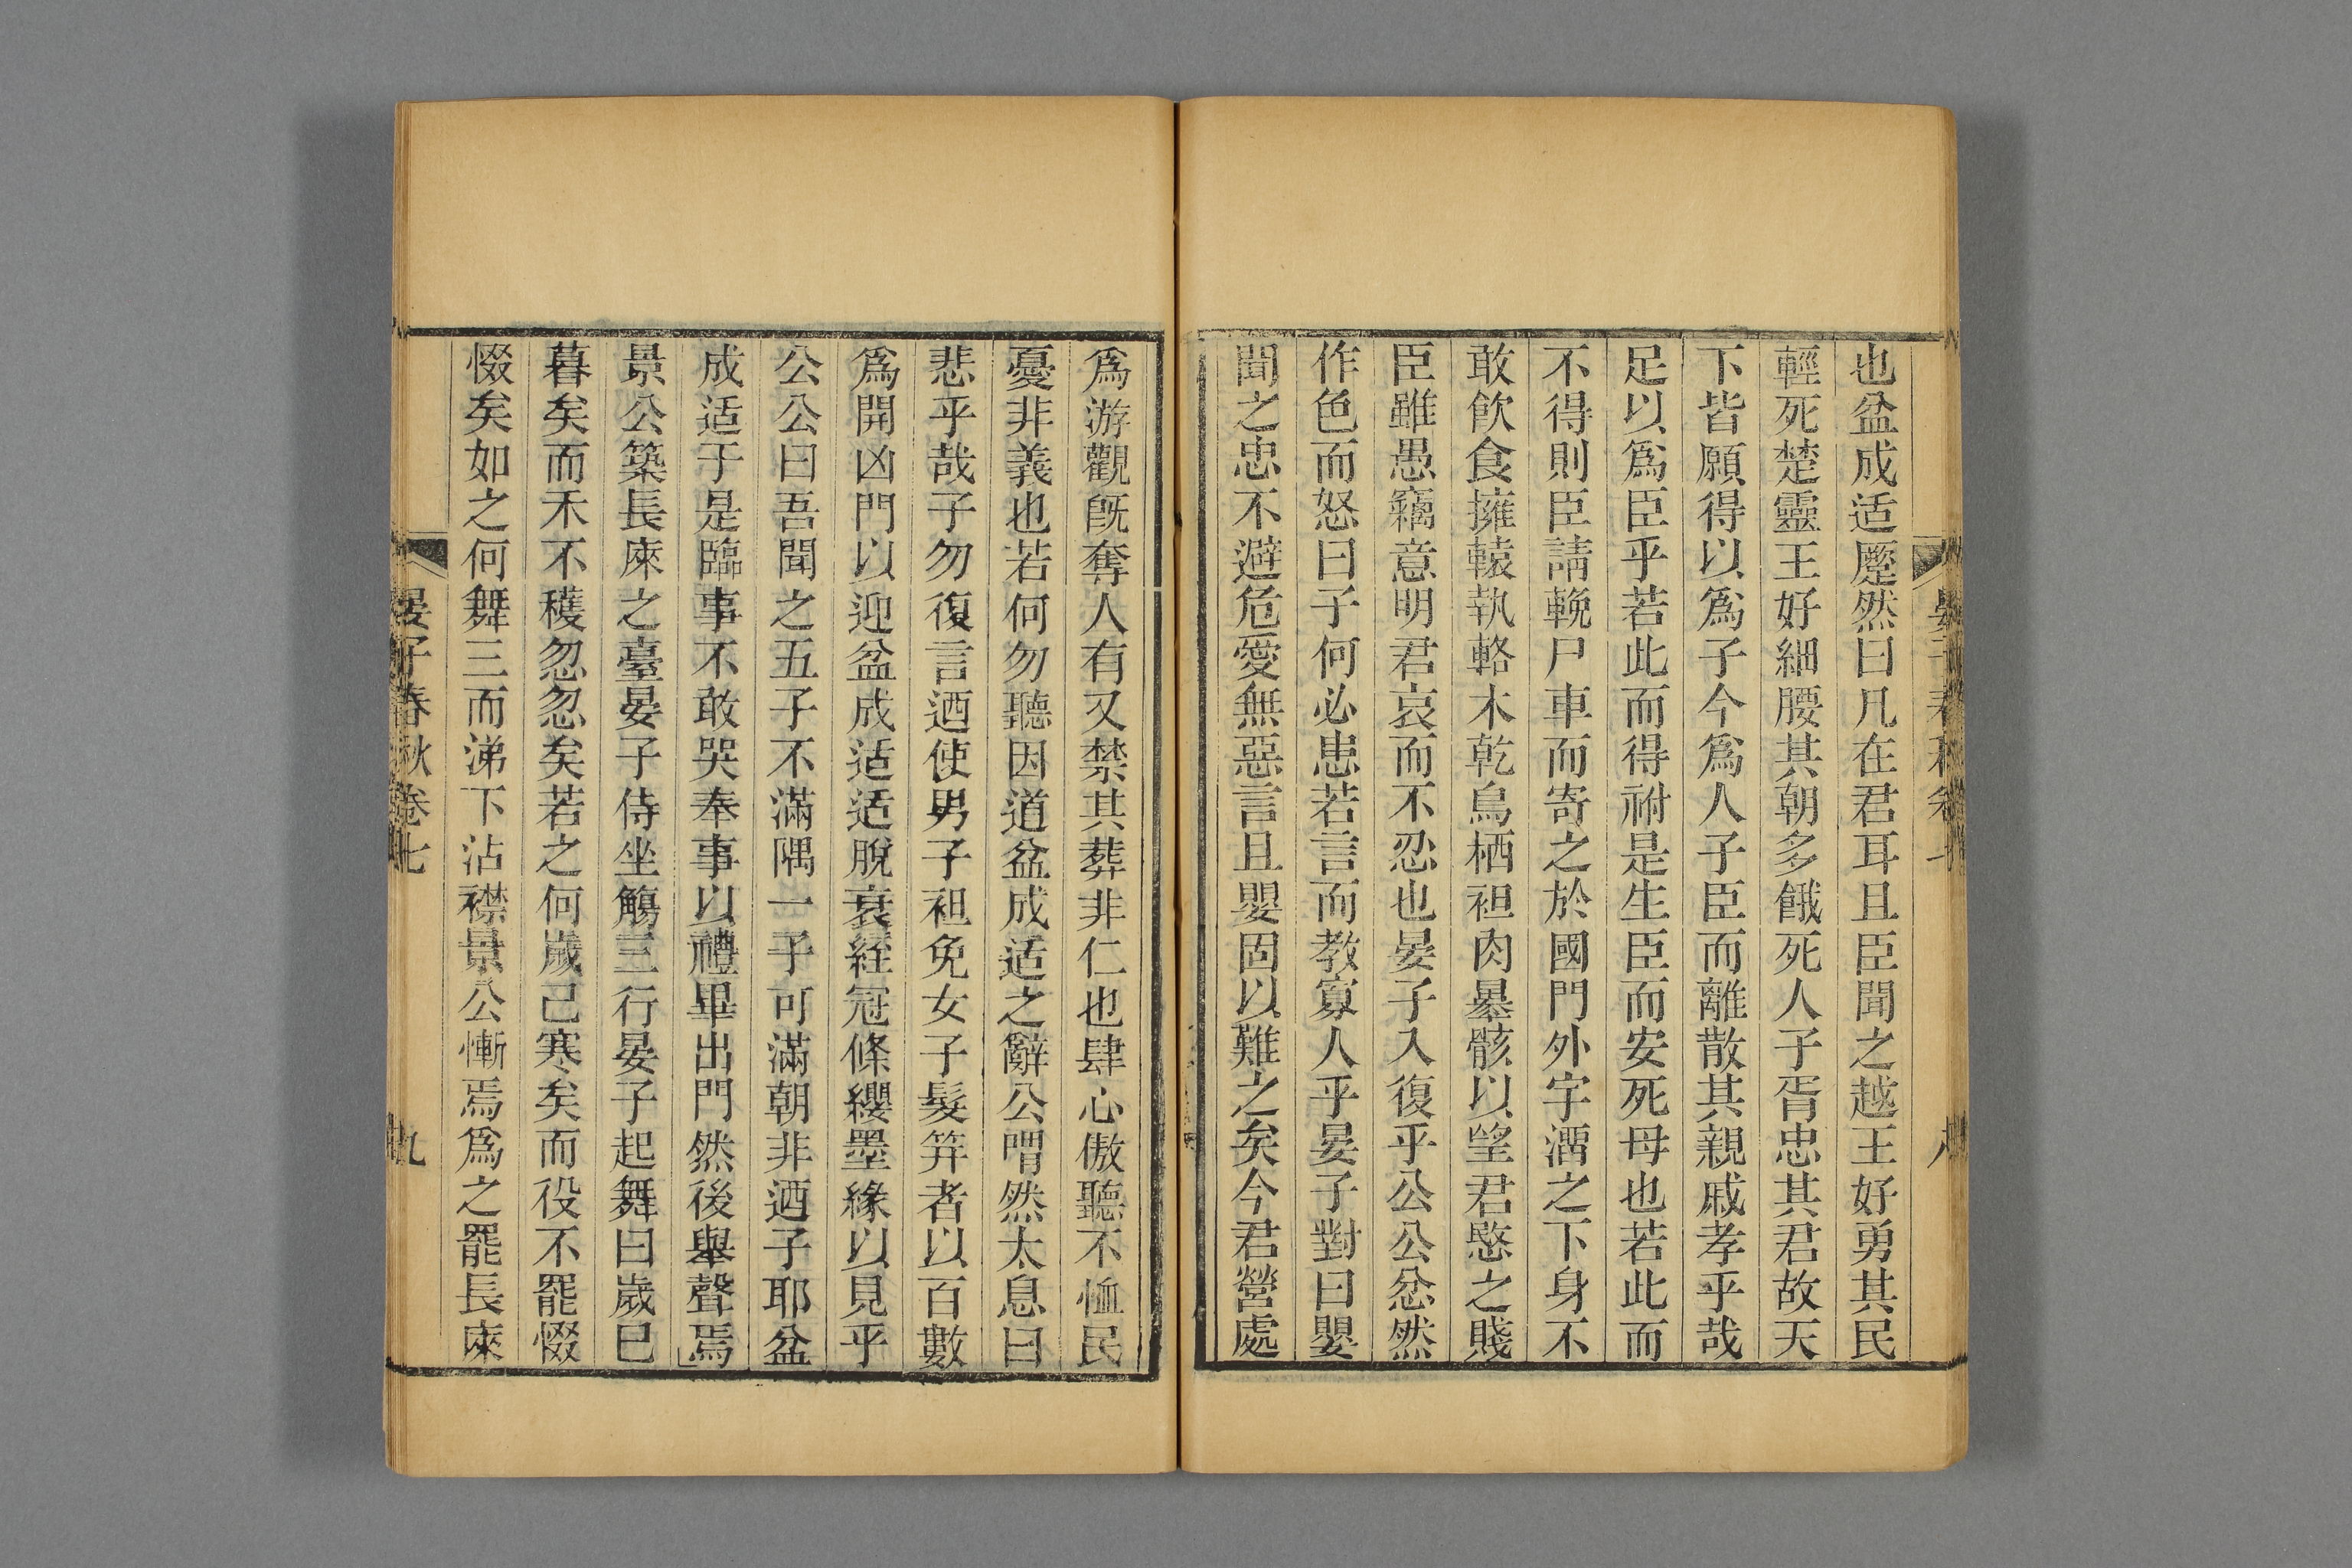 也盆成适蹷然曰凡在君耳且臣聞之越王好勇其民
輕死楚靈王好細腰其朝多餓死人子胥忠其君故天
下皆願得以爲子今爲人子臣而離散其親戚孝乎哉
足以爲臣乎若此而得祔是生臣而安死母也若此而
不得則臣請輓尸車而寄之於國門外宇溜之下身不
敢飲食擁轅執輅木乾鳥栖袒肉暴骸以望君愍之賤
臣雖愚竊意明君哀而不忍也晏子入復乎公公忿然
作色而怒曰子何必患若言而教寡人乎晏子對曰嬰
聞之忠不避危愛無惡言且嬰固以難之矣今君營處
爲游觀旣奪人有又禁其葬非仁也肆心傲聽不恤民
憂非義也若何勿聽因道盆成适之辭公喟然太息曰
悲乎哉子勿復言迺使男子袒免女子髮笄者以百數
爲開凶門以迎盆成适适脫衰絰冠條纓墨緣以見乎
公公曰吾聞之五子不滿隅一子可滿朝非迺子耶盆
成适于是臨事不敢哭奉事以禮畢出門然後舉聲焉
景公築長庲之臺晏子侍坐觴三行晏子起舞曰歲已
暮矣而禾不穫忽忽矣若之何歲已寒矣而役不罷惙
惙矣如之何舞三而涕下沾襟景公慚焉爲之罷長庲
晏子春秋卷七
九